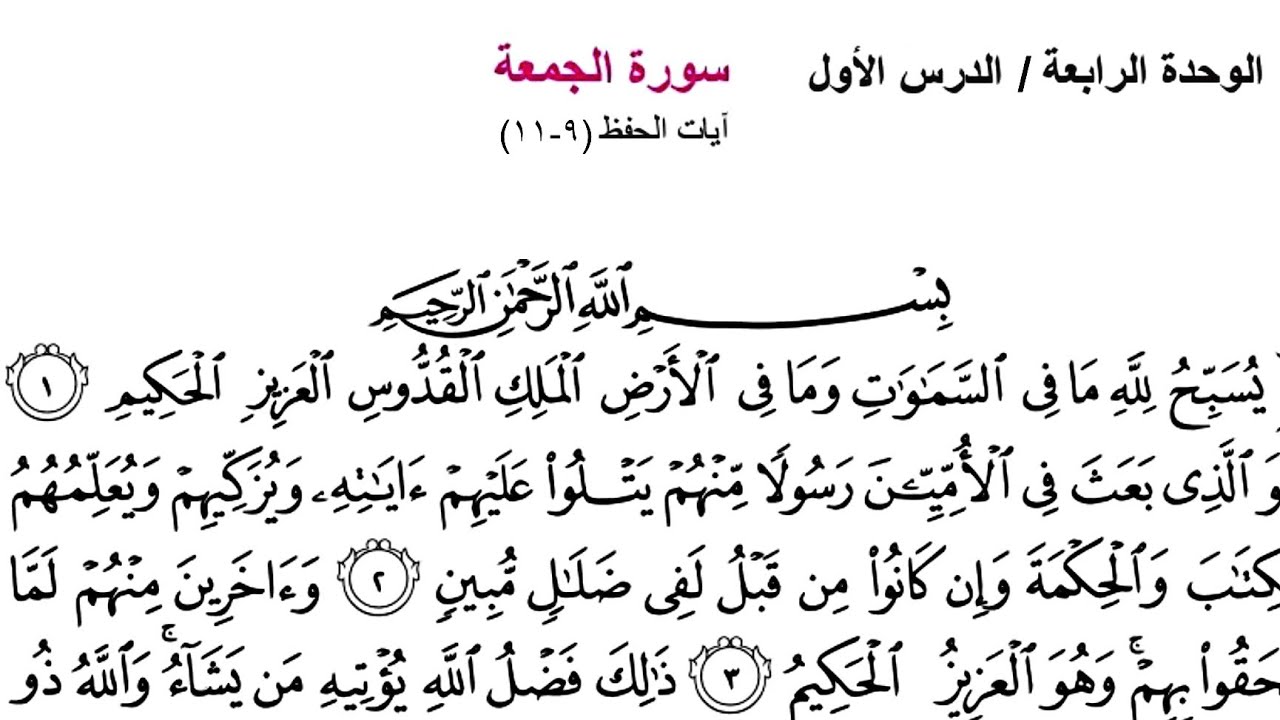 الوحدة الرابعة / الدرس الأول
سورة الجمعة
آيات الحفظ (٩-١١)
بِسْمِ اللَّهِ الرَّحْمَٰنِ الرَّحِيمِ
يُسَبِّحُ لِلَّهِ مَا فِى ٱلسَّمَـٰوَٰتِ وَمَا فِى ٱلْأَرْضِ ٱلْمَلِكِ ٱلْقُدُّوسِ ٱلْعَزِيزِ ٱلْحَكِيمِ ١
وَ ٱلَّذِى بَعَثَ فِى ٱلْأُمِّيِّـۧنَ رَسُولًا مِّنْهُمْ يَتْلُوا۟ عَلَيْهِمْ ءَايَـٰتِهِۦ وَيُزَكِّيهِمْ وَيُعَلِّمُهُمُ
كِتَـٰبَ وَٱلْحِكْمَةَ وَإِن كَانُوا۟ مِن قَبْلُ لَفِى ضَلَـٰلٍ مُّبِينٍ ٢ وَءَاخَرِينَ مِنْهُمْ لَمَّا
حَقُوا۟ بِهِمْ ۚ وَهُوَ ٱلْعَزِيزُ ٱلْحَكِيمُ ٣ ذَٰلِكَ فَضْلُ ٱللَّهِ يُؤْتِيهِ مَن يَشَآءُ ۚ وَٱللَّهُ ذُو